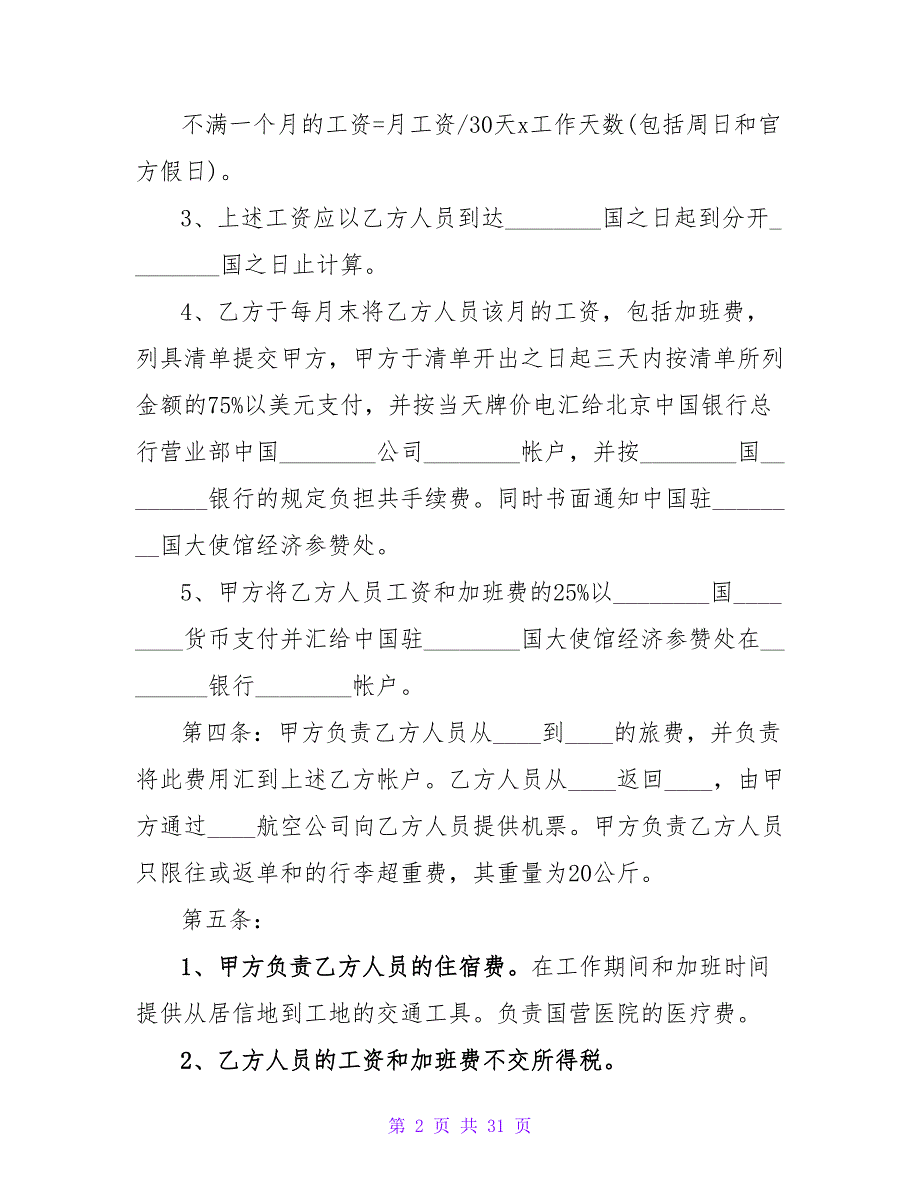 不满一个月的工资=月工资/30天x工作天数(包括周日和官
方假日)。
3、上述工资应以乙方人员到达________国之日起到分开_
_______国之日止计算。
4、乙方于每月末将乙方人员该月的工资，包括加班费，
列具清单提交甲方，甲方于清单开出之日起三天内按清单所列
金额的75%以美元支付，并按当天牌价电汇给北京中国银行总
行营业部中国________公司________帐户，并按________国__
______银行的规定负担共手续费。同时书面通知中国驻______
__国大使馆经济参赞处。
5、甲方将乙方人员工资和加班费的25%以________国____
____货币支付并汇给中国驻________国大使馆经济参赞处在__
______银行________帐户。
第四条：甲方负责乙方人员从____到____的旅费，并负责
将此费用汇到上述乙方帐户。乙方人员从____返回____，由甲
方通过____航空公司向乙方人员提供机票。甲方负责乙方人员
只限往或返单和的行李超重费，其重量为20公斤。
第五条：
1、甲方负责乙方人员的住宿费。在工作期间和加班时间
提供从居信地到工地的交通工具。负责国营医院的医疗费。
2、乙方人员的工资和加班费不交所得税。
第 2 页 共 31 页